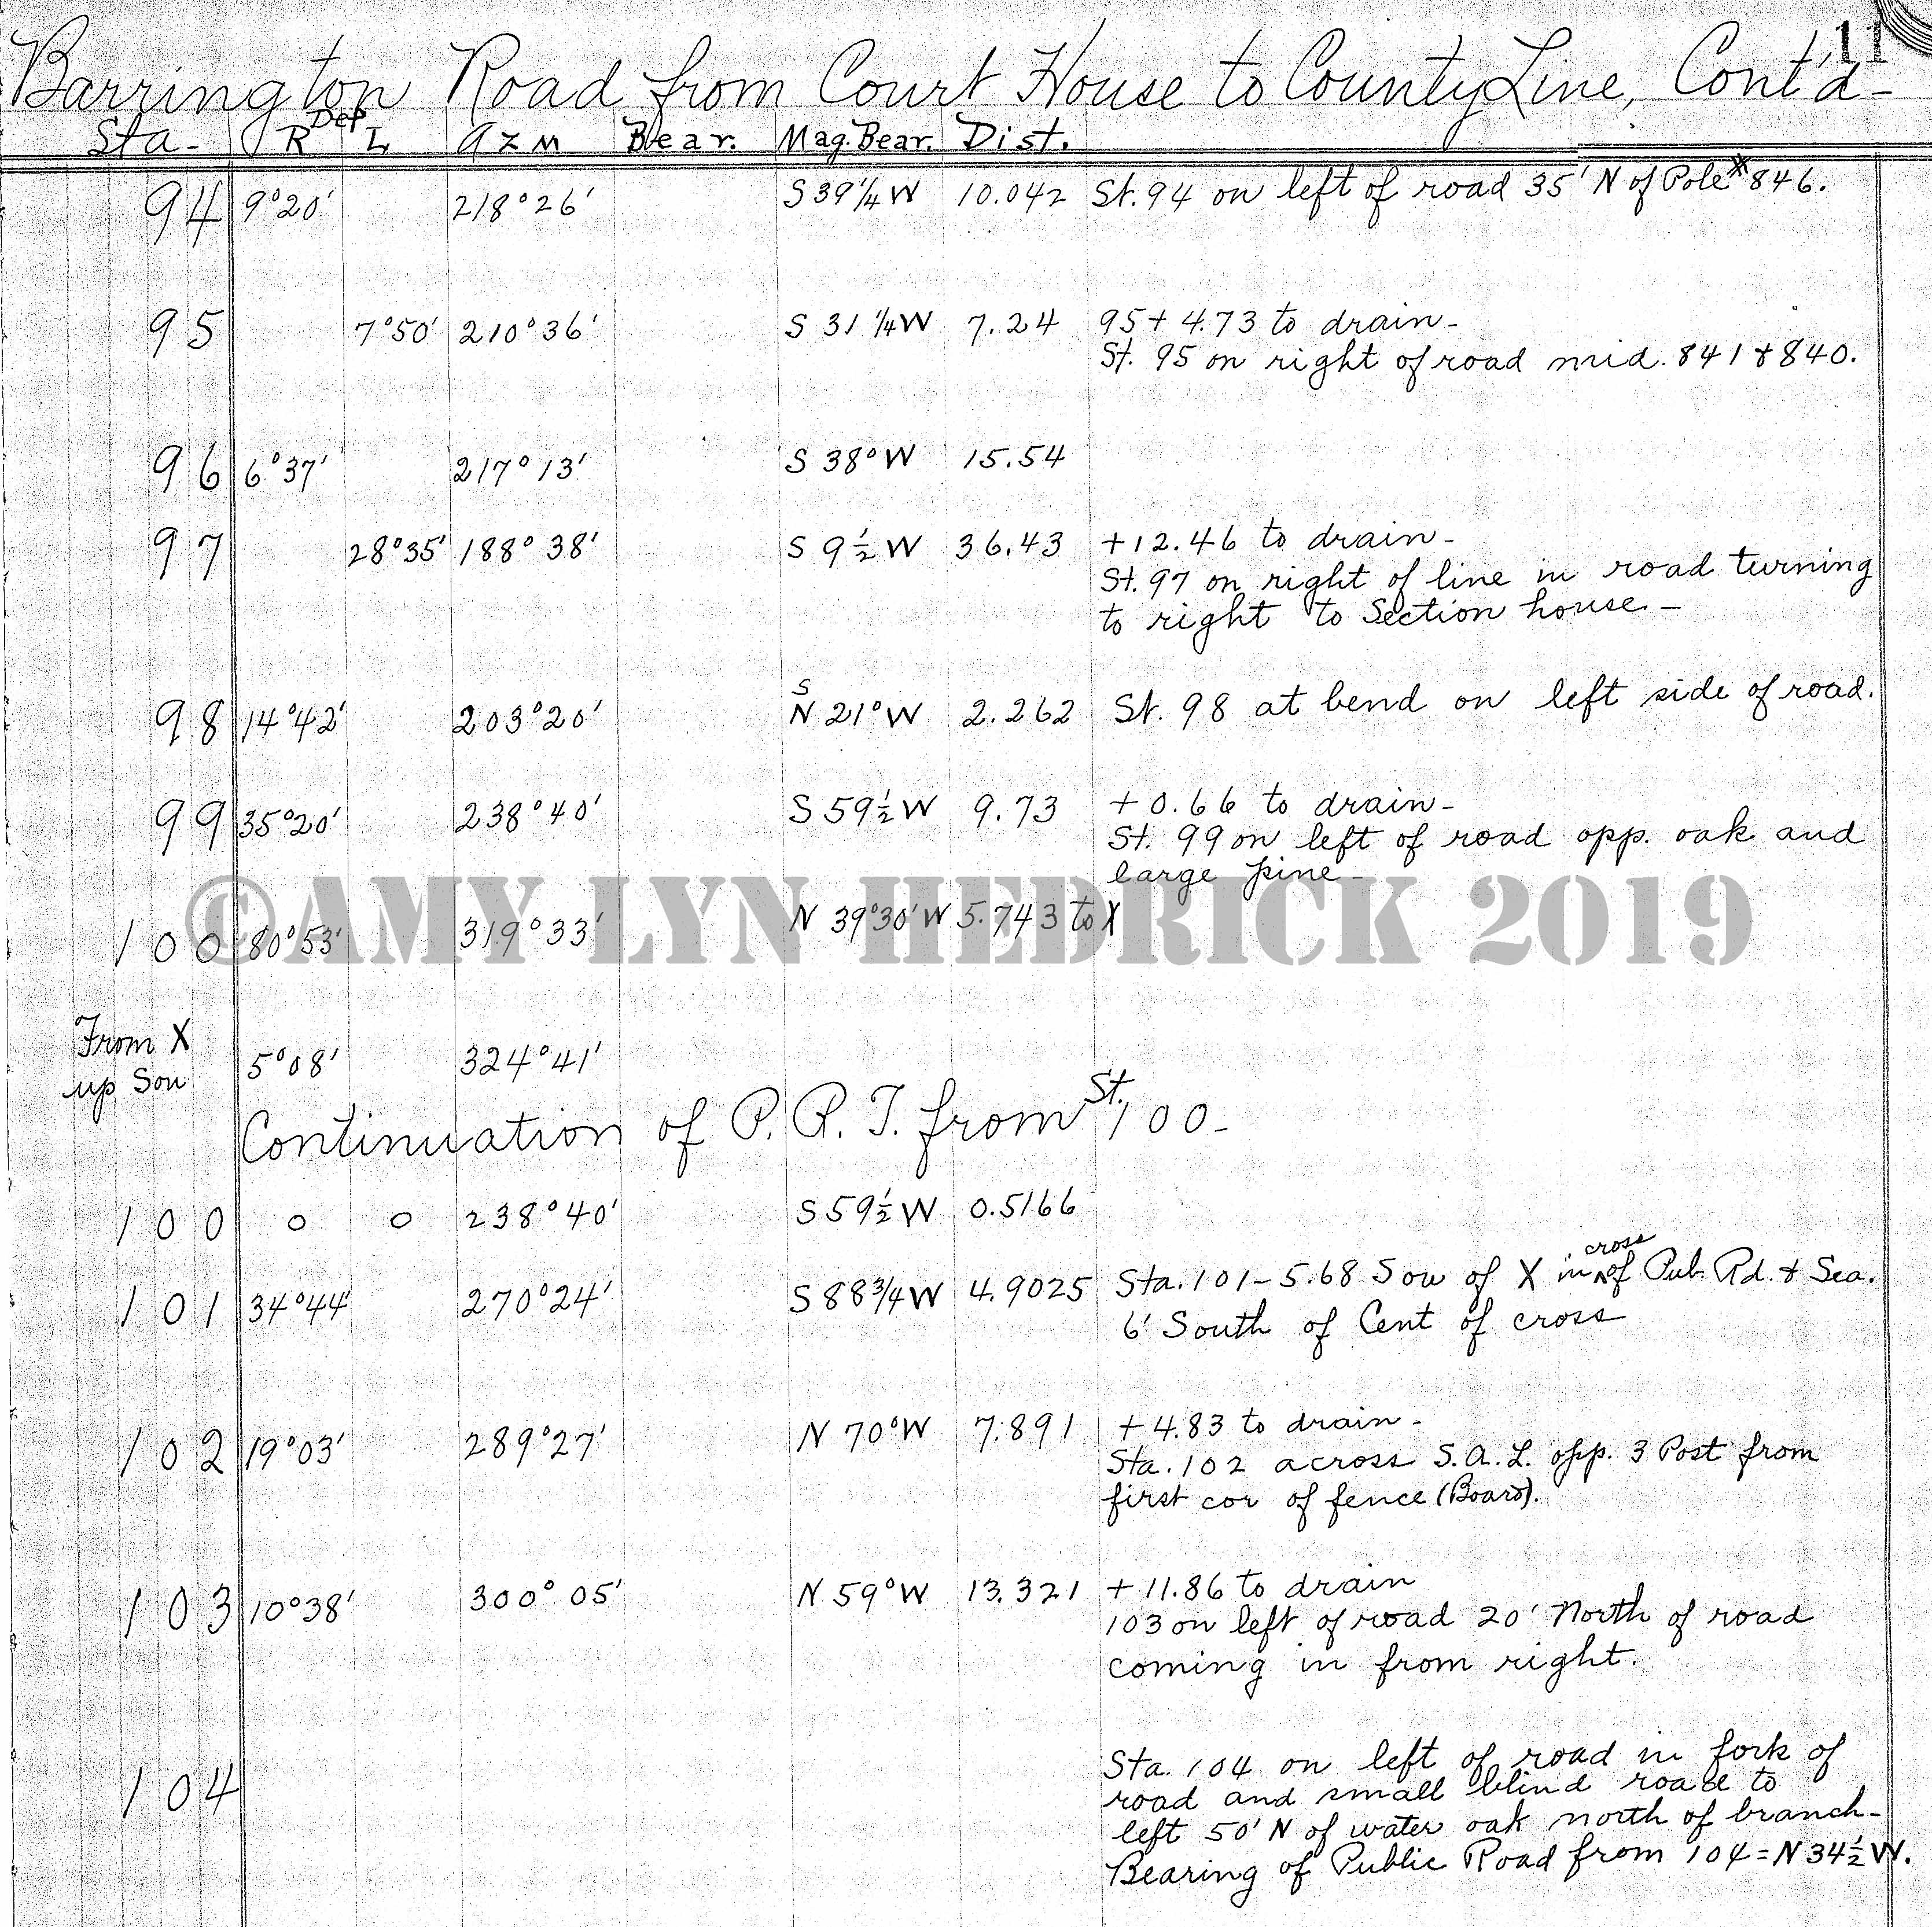 11
Barrington Road from Court House to County Line, Cont'd-
Sta- R Def L Azm Bear. Mag.Bear. Dist.
94 9°20' 218°26' S 39¼ W 10.042 St. 94 on left of road 35' N of Pole # 846.
95 7°50' 210°36' S 31¼ W 7.24 95+4.73 to drain-
St. 95 on right of road mid. 841 & 840.
96 6°37' 217°13' S 38° W 15.54
97 28°35' 188°38' S 9½ W 36.43 +12.46 to drain-
St. 97 on right of line in road turning
to right to Section house-
98 14°42' 203°20' S N 21° W 2.262 St. 98 at bend on left side of road.
99 35°20' 238°40' S 59½ W 9.73 +0.66 to drain-
St. 99 on left of road opp. oak and
large pine-
100 80°53' 319°33' N 39°30' W 5.743 to X
©AMY LYN HEDRICK 2019
From X
up Sou 5°08' 324°41'
Continuation of P. R. T. from St. 100-
100 0 0 238°40' S 59½ W 0.5166
101 34°44' 270°24' S 88¾ W 4.9025 Sta. 101-5.68 Sou of X in cross of Pub. Rd. & Sea.
6' South of Cent of cross
102 19°03' 289°27' N 70° W 7.891 +4.83 to drain-
Sta. 102 across S.A.L. opp. 3 Post from
first cor of fence (Board).
103 10°38' 300°05' N 59° W 13.321 +11.86 to drain
103 on left of road 20' North of road
coming in from right.
104 Sta. 104 on left of road in fork of
road and small blind road to
left 50' N of water oak north of branch-
Bearing of Public Road from 104=N 34½ W.